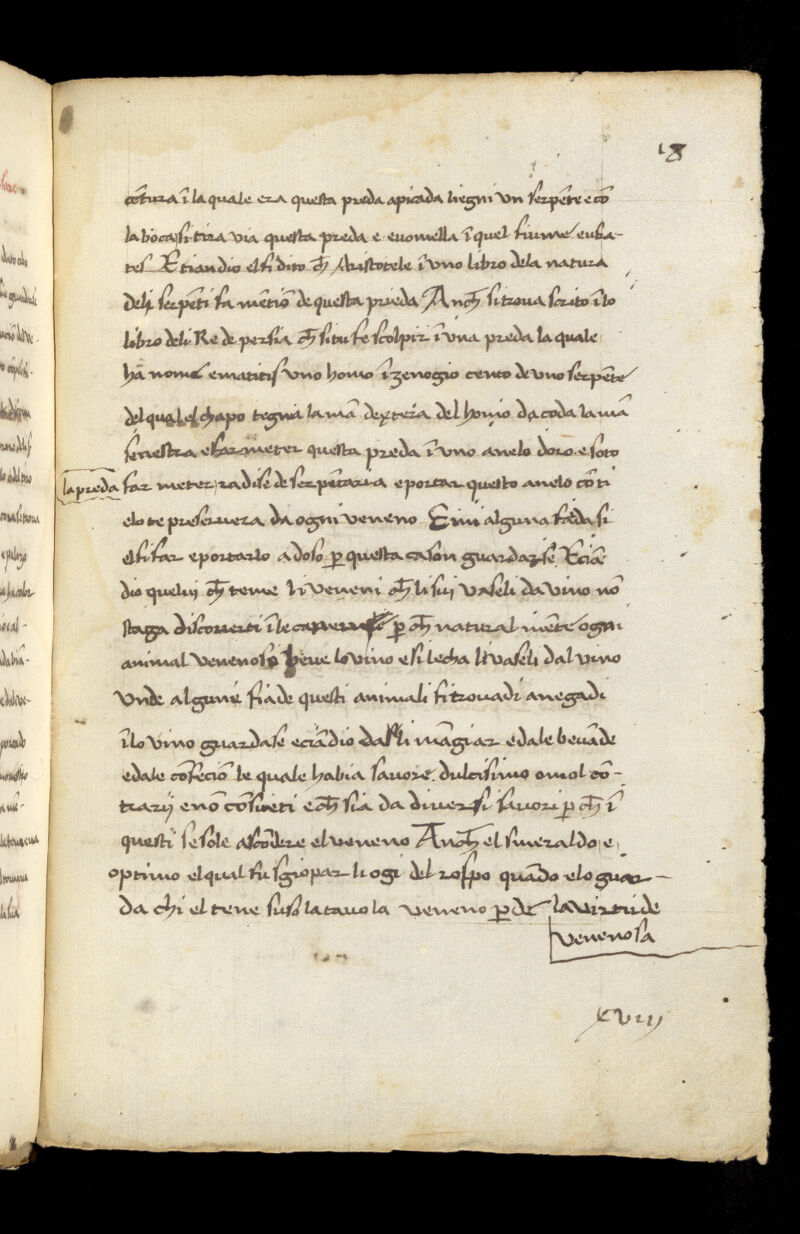 18
cētura ī la quale era questa preda apicada liegni un serpēte e cō
la boca si tira via questa preda e evomella ī quel fiume eufra-
tes Etiandio el fi dito ch̄ Aristotele ī uno libro dela natura
deli serpēti fa mētiō de questa prieda Anch̄ si trova scrito ī lo
libro deli Re de persia ch̄ si tu fe scolpir ī una preda la quale
hā nome ematitis uno homo īzenogio cento de uno serpēte
del qual el chapo tegna la mā dextera del homo da coda la mā
senestra e far meter questa preda ī uno anelo doro e soto
la preda far meter radise de serpētaria e portar questo anelo cō ti
elo te preservera da ogni veneno E in alguna fiēda si
el fi far e portarlo adoso p questa cason guardarse Eciā
dio quelui ch̄ teme li veneni ch̄ li sui vaseli da vino nō
staga discoverti ī le p ch̄ natural mēte ogni
animal venenoso beve lo vino e si lecha li vaseli dal vino
Unde algune fiade questi animali fi trovadi anegadi
ī lo vino guardase eciādio dali māgiar e dale bevāde
e dale cōfeciō le quale habia savore dulcisimo o mol cō-
trarij e nō cōsueti e ch̄ sia da diversi savori p ch̄ ī
questi se sole ascōdere el veneno Anch̄ el smeraldo e
optimo el qual fu sgiopar li ogi del rospo quādo elo guar-
da chi el tene suso la tavola veneno pde la virtude
venenosa
XVIII